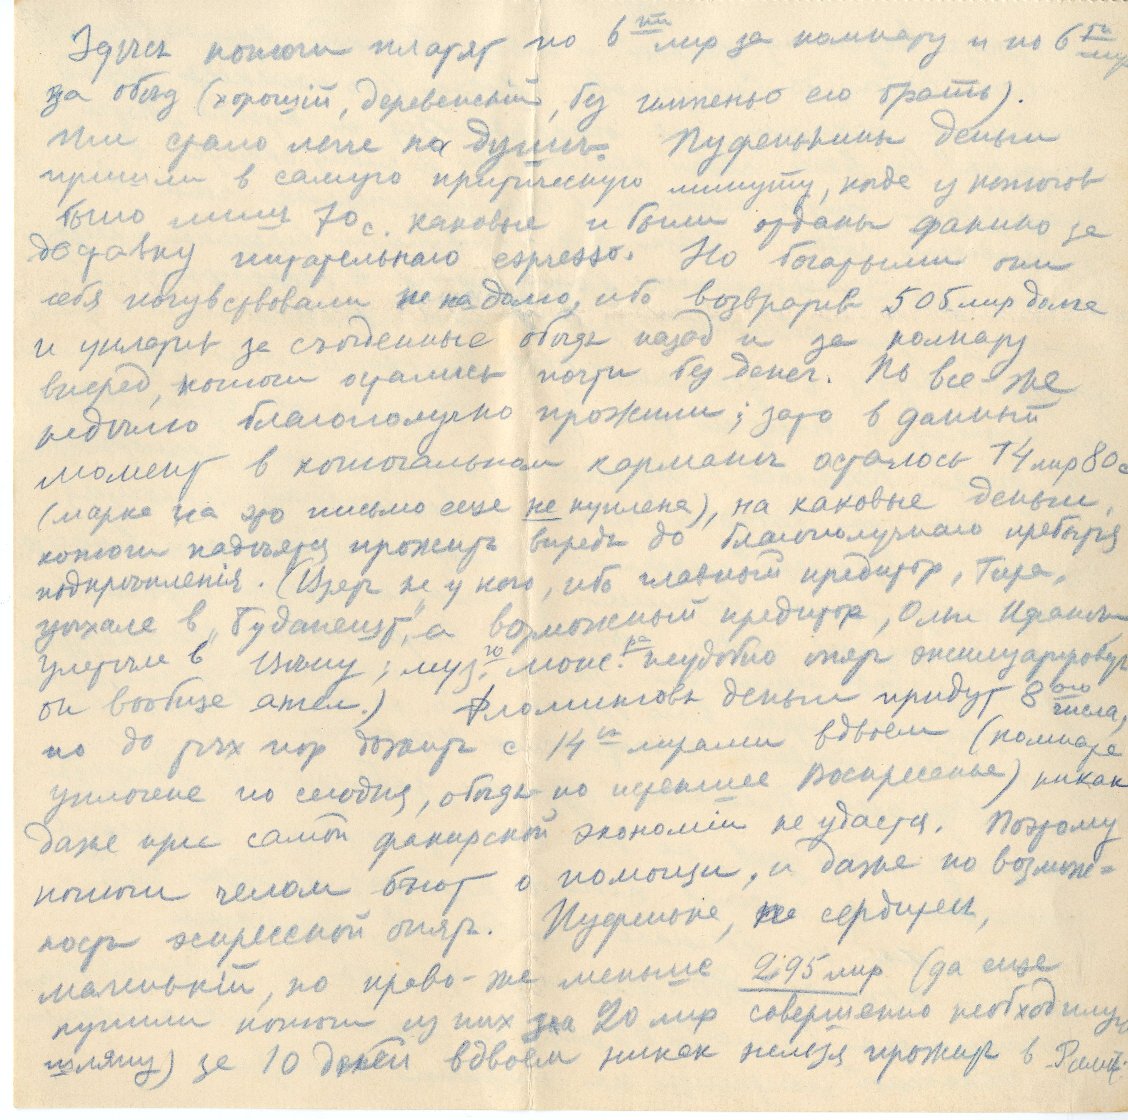 Здѣсь котоги платят по 6ти лир за комнату и по 6ти лир
за обѣд (хорошій, деревенскій, без именно его брать).
Им стало легче на душѣ. Пуфенькины деньги
пришли в самую критическую минуту, когда у котогов
было лишь 70 с. каковые и были отданы факино за
доставку питательнаго espresso. Но богатыми они
себя почувствовали не надолго, ибо возвратив 505 лир долга
и уплатив за съѣденные обѣды назад и за комнату
вперед, котоги остались почти без денег. Но все-же
недѣлю благополучно прожили; зато в данный
момент в котогальном карманѣ осталось 14 лир 80 с
(марка на это письмо еще не куплена), на каковые деньги
котоги надѣятся прожить впредь до благополучнаго прибытія
подкрѣпленія. (Взять не у кого, ибо главный кредитор,
уѣхала в Будапешт, а возможный кредитор,
улетѣла в ; муз.го монс.ра неудобно опять эксплуатировать
он вообще ) Фломинговы деньги придут 8ого числа,
но до тѣх пор дожить с 14ю лирами вдвоем (комната
уплочена по сегодня, обѣды по перевшее Воскресенье) никак
даже при самой факирской экономіи не удастся. Поэтому
котоги челом бьют о помощи, и даже по возмож=
ность экспрессной опять. Пуфенька, не сердитесь,
маленькій, но право-же меньше 295 лир (да еще
купили котоги из них за 20 лир совершенно необходимую
шляпу) за 10 дней вдвоем никак нельзя прожить в Римѣ.